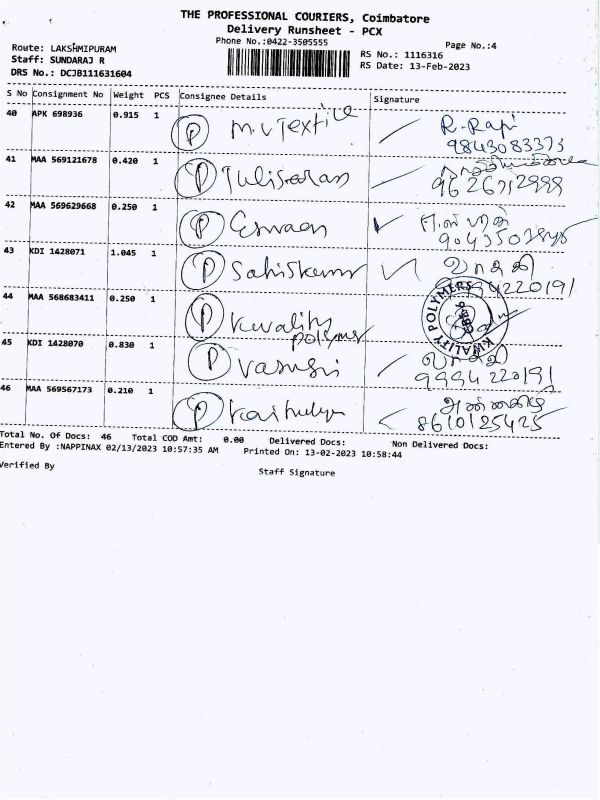 THE PROFESSIONAL COURIERS, Coimbatore
Delivery Runsheet - PCX
Phone No.:0422-3505555
Page No.:4
Route: LAKSHMIPURAM
Staff: SUNDARAJ R
DRS No.: DCJB111631604
RS No.: 1116316
RS Date: 13-Feb-2023
S No Consignment No Weight PCS Consignee Details Signature
40 APK 698936 0.915 1 P M.V Textile R. Raji
9843083373
41 MAA 569121678 0.420 1 P
42 MAA 569629668 0.250 1 P
43 KDI 1428071 1.045 1 P வாசுகி
9994220191
44 MAA 568683411 0.250 1 P Kwality
polymer
KWALITY POLYMERS
45 KDI 1428070 0.830 1 P Vansri வாசுகி
9994220191
46 MAA 569567173 0.210 1 P
8610125425
Total No. Of Docs: 46 Total COD Amt: 0.00 Delivered Docs: Non Delivered Docs:
Entered By :NAPPINAX 02/13/2023 10:57:35 AM Printed On: 13-02-2023 10:58:44
Verified By
Staff Signature